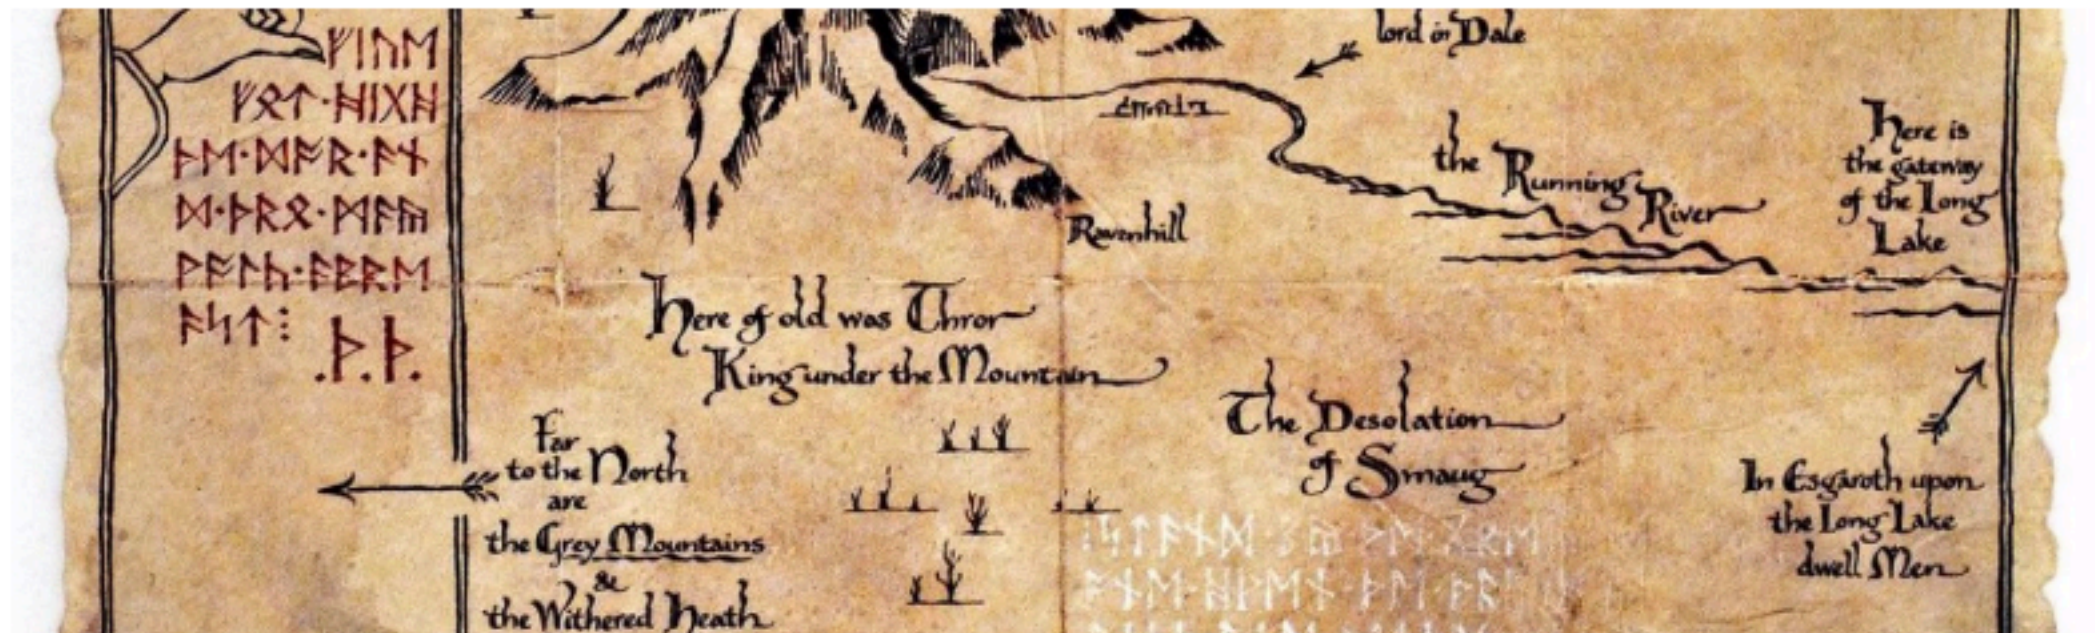 lord in Dale
ᚠᛁᚢᛖ
ᚠᛟᛏ᛫ᚻᛁᚷᚻ
ᚦᛖ᛫ᛞᚩᚱ᛫ᚪᚾ
ᛞ᛫ᚦᚱᛟ᛫ᛗᚪᚣ
ᚹᚪᛚᚳ᛫ᚪᛒᚱᛖ
ᚪᛋᛏ⁝
.ᚦ.ᚦ.
the Running River
Here is
the gateway
of the Long
Lake
Ravenhill
Here of old was Thror
King under the Mountain
The Desolation
of Smaug
Far
to the North
are
the Grey Mountains
&
the Withered Heath
In Esgaroth upon
the Long Lake
dwell Men
ᛋᛏᚪᚾᛞ᛫ᛒᚣ᛫ᚦᛖ᛫ᚷᚱᛖ
ᚻᚹᛖᚾ᛫ᚦᛖ